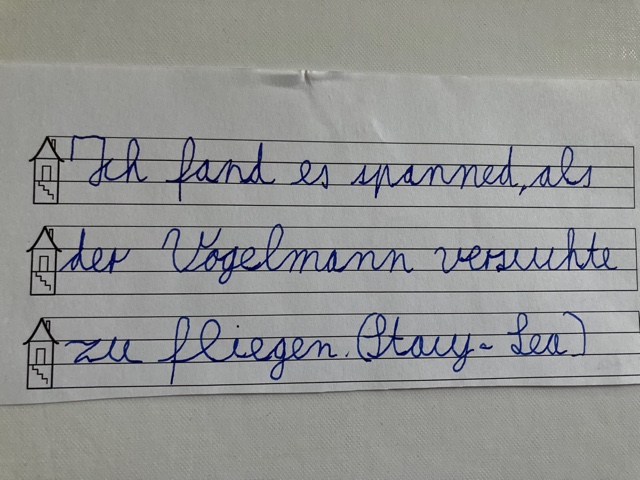 Ich fand es spanned, als
der Vogelmann versuchte
zu fliegen. (Stacy-Lea)